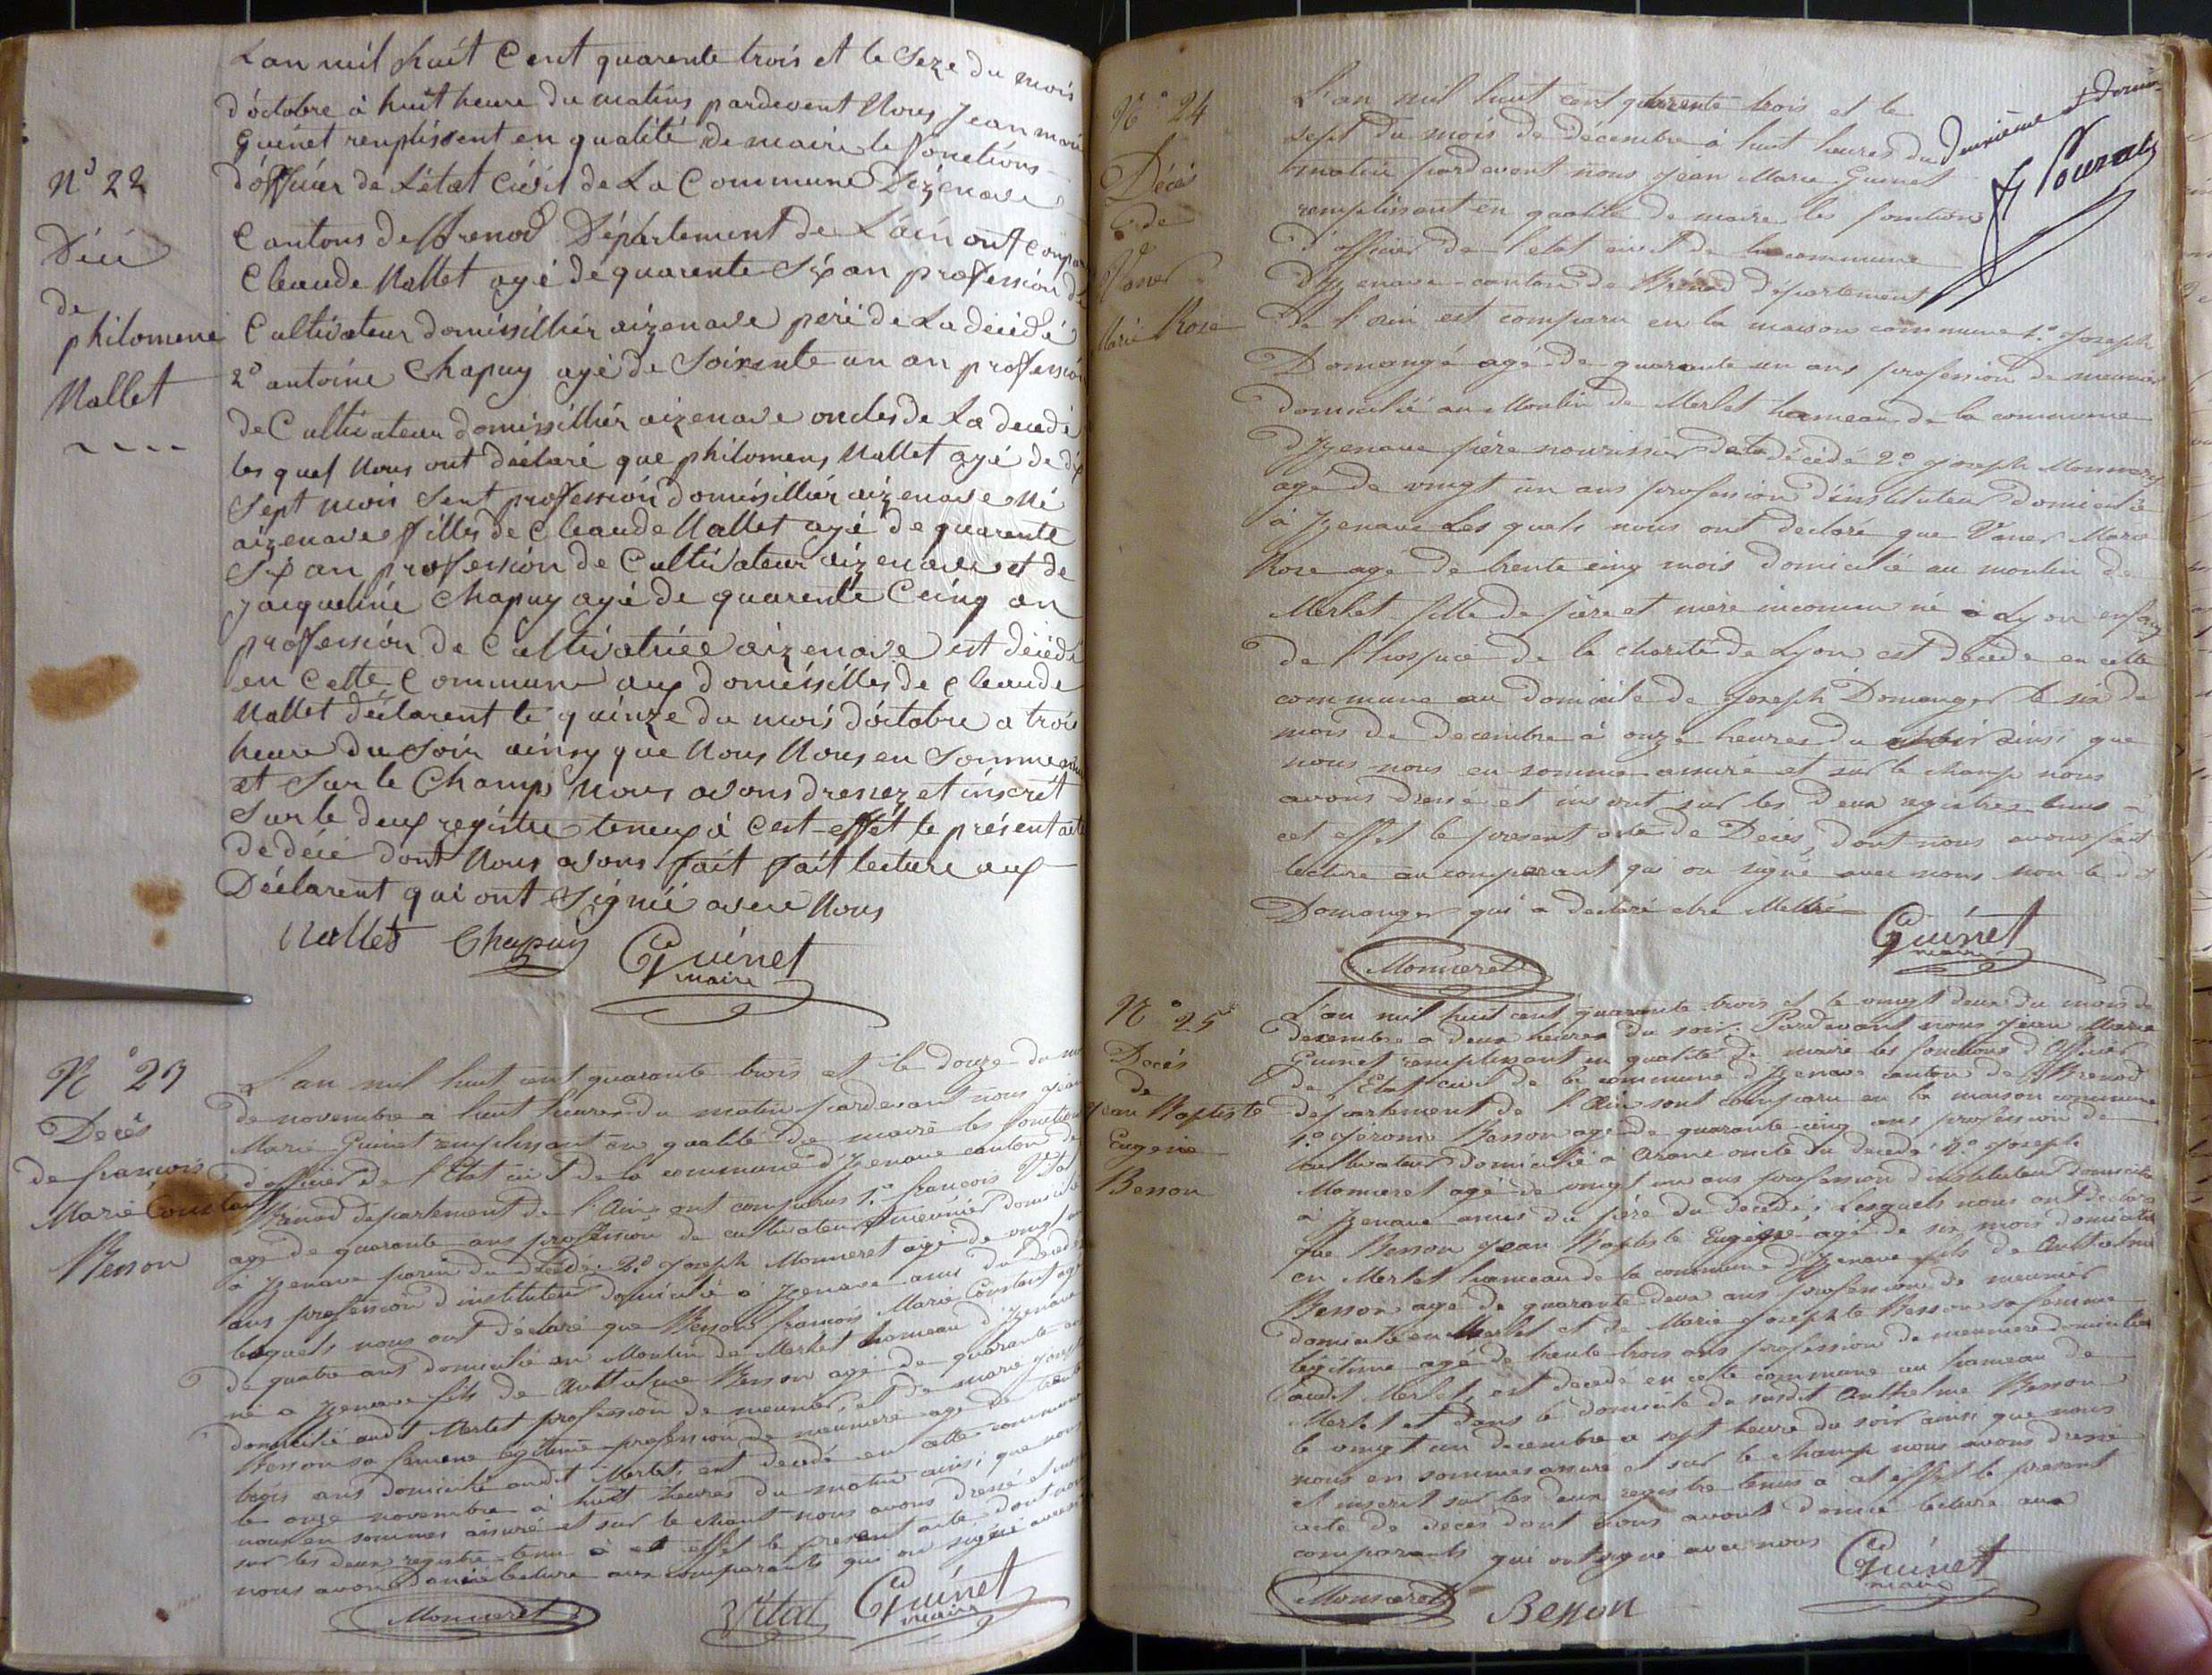 L'an mil huit Cent quarente trois et le Seze du mois
d'octobre à huit heure du matins pardevent Nous Jean marie
Guinet remplissent en qualité de maire le fonctions
d'offisier de L'état Civil de La Commune Dizenave
Cantons de Brenod Département de L'ain ont compa
Cleaude Nallet agé de quarente Six an profession de
Cultivateur domissillier aizenave peré de La décédé
2° antoine Chapuy agé de Soixente un an profession
de Cultivateur domissillier aizenave oncles de La decedé
les quel Nous ont déclaré que philomene Nallet agé de dix
Sept mois Sent profession domissillier aizenave Né
aizenave filles de Cleaude Nallet agé de quarente
Six an profession de Cultivateur aizenave et de
Jacqueline Chapuy agé de quarente Ceinq an
profession de Cultivatrice aizenave est décédé
en Cette Commune aux domissilles de Cleaude
Nallet déclarent le quinze du mois d'octobre a trois
heure du Soir ainsy que Nous Nous en Somme
et Sur le Champ Nous avons dressez et inscrit
Sur le deux registre teneux à Cest effét le présent acte
de décé dont Nous avons fait fait lecture aux
Déclarent qui ont Signié avece Nous
Nallet Chapuy Guinet
maire
N° 22
Décé
de
philomene
Nallet
N° 23
Décès
de françois
Marie Constant
Besson
L'an mil huit cent quarante trois et le douze du
de novembre a huit heures du matin pardevant nous Jean
Marie Guinet remplissant en qualité de maire les fonctions
d'officier de l'Etat civil de la commune d'Izenave canton de
Brénod département de l'Ain ont comparus 1° françois Vital
agé de quarante ans profession de cultivateur meunier domicilié
à Izenave parin du décédé. 2° Joseph Monneret agé de vingt un
ans profession d'instituteur domicilié à Izenave amis du décédé
lesquels nous ont déclaré que Besson françois Marie Constant agé
de quatre ans domicilié au Moulin de Merlet hameau d'Izenave
né a Izenave fils de Anthelme Besson agé de quarante
domicilié audit Merlet profession de meunier, et de marie Joseph
Besson sa femme légitime profession de meuniere agé de trente
trois ans domicilié audit Merlet, est decedé en cette commune
le onze novembre à huit heures du matin ainsi que nous
nous en sommes assuré et sur le champ nous avons dressé et
sur les deux registre tenu à cet effet le present acte dont
nous avons donné lecture aux comparants qui on signé avec
Monneret Vital Guinet
maire
N° 24
Décès
de
Vaner
Marie Rose
deuxième et dernier
L'an mil huit cent quarente trois et le
sept du mois de décembre à huit heures du
matin pardevent nous Jean Marie Guinet
remplissant en qualité de maire les fonctions
d'officier de l'etat civil de la commune
d'Izenave canton de Brénod département
de l'ain est comparu en la maison commune 1° Joseph
Domangé agé de quarante un ans profession de meunier
domicilié au Moulin de Merlet hameau de la commune
d'Izenave père nourissier de la décédé 2° Joseph Monneret
agé de vingt un ans profession d'instituteur domicilié
à Izenave Les quels nous ont déclaré que Vaner Marie
Rose age de trente cinq mois domicilié au moulin de
Merlet fille de père et mère inconnu né à Lyon enfant
de l'hospice de la charité de Lyon est décédé en cette
commune au domicile de Joseph Domanger le six de
mois de decembre à onze heures du ainsi que
nous nous en somme assuré et sur le champ nous
avons dressé et inscrit sur les deux registres tenus à
cet effet le present acte de Décès, dont nous avons fait
lecture au comparant qui on signé avec nous non le dit
Domanger qui a declaré etre illettré
Monneret Guinet
maire
N° 25
Décès
de
Jean Baptiste
Eugenie
Besson
L'an mil huit cent quarante trois et le vingt deux du mois de
decembre a deux heures du soir. Pardevant nous Jean Marie
Guinet remplissant en qualité de maire les fonctions d'Officier
de l'Etat civil de la commune d'Izenave canton de Brenod
département de l'Ain sont comparu en la maison commune
1° Jérome Besson agé de quarante cinq ans profession de
cultivateur domicilié à Aranc oncle du decedé 2° Joseph
Monneret agé de vingt un ans profession d'instituteur domicilié
à Izenave amis du père du decedé, Lesquels nous ont declaré
que Besson Jean Baptiste Eugène agé de six mois domicilié
en Merlet hameau de la commune d'Izenave fils de Anthelme
Besson agé de quarante deux ans profession de meunier
domicilié en Merlet et de Marie Josephte Besson sa femme
légitime agé de trente trois ans profession de meuniere domiciliée
audit Merlet, est decedé en cette commune au hameau de
Merlet et dans le domicile du susdit Anthelme Besson
le vingt un decembre a sept heure du soir ainsi que nous
nous en sommes assuré et sur le champ nous avons dressé
et inscrit sur les deux registre tenus a cet effet le present
acte de deces dont nous avons donné lecture aux
comparants qui ont signé avec nous
Monneret Besson Guinet
maire